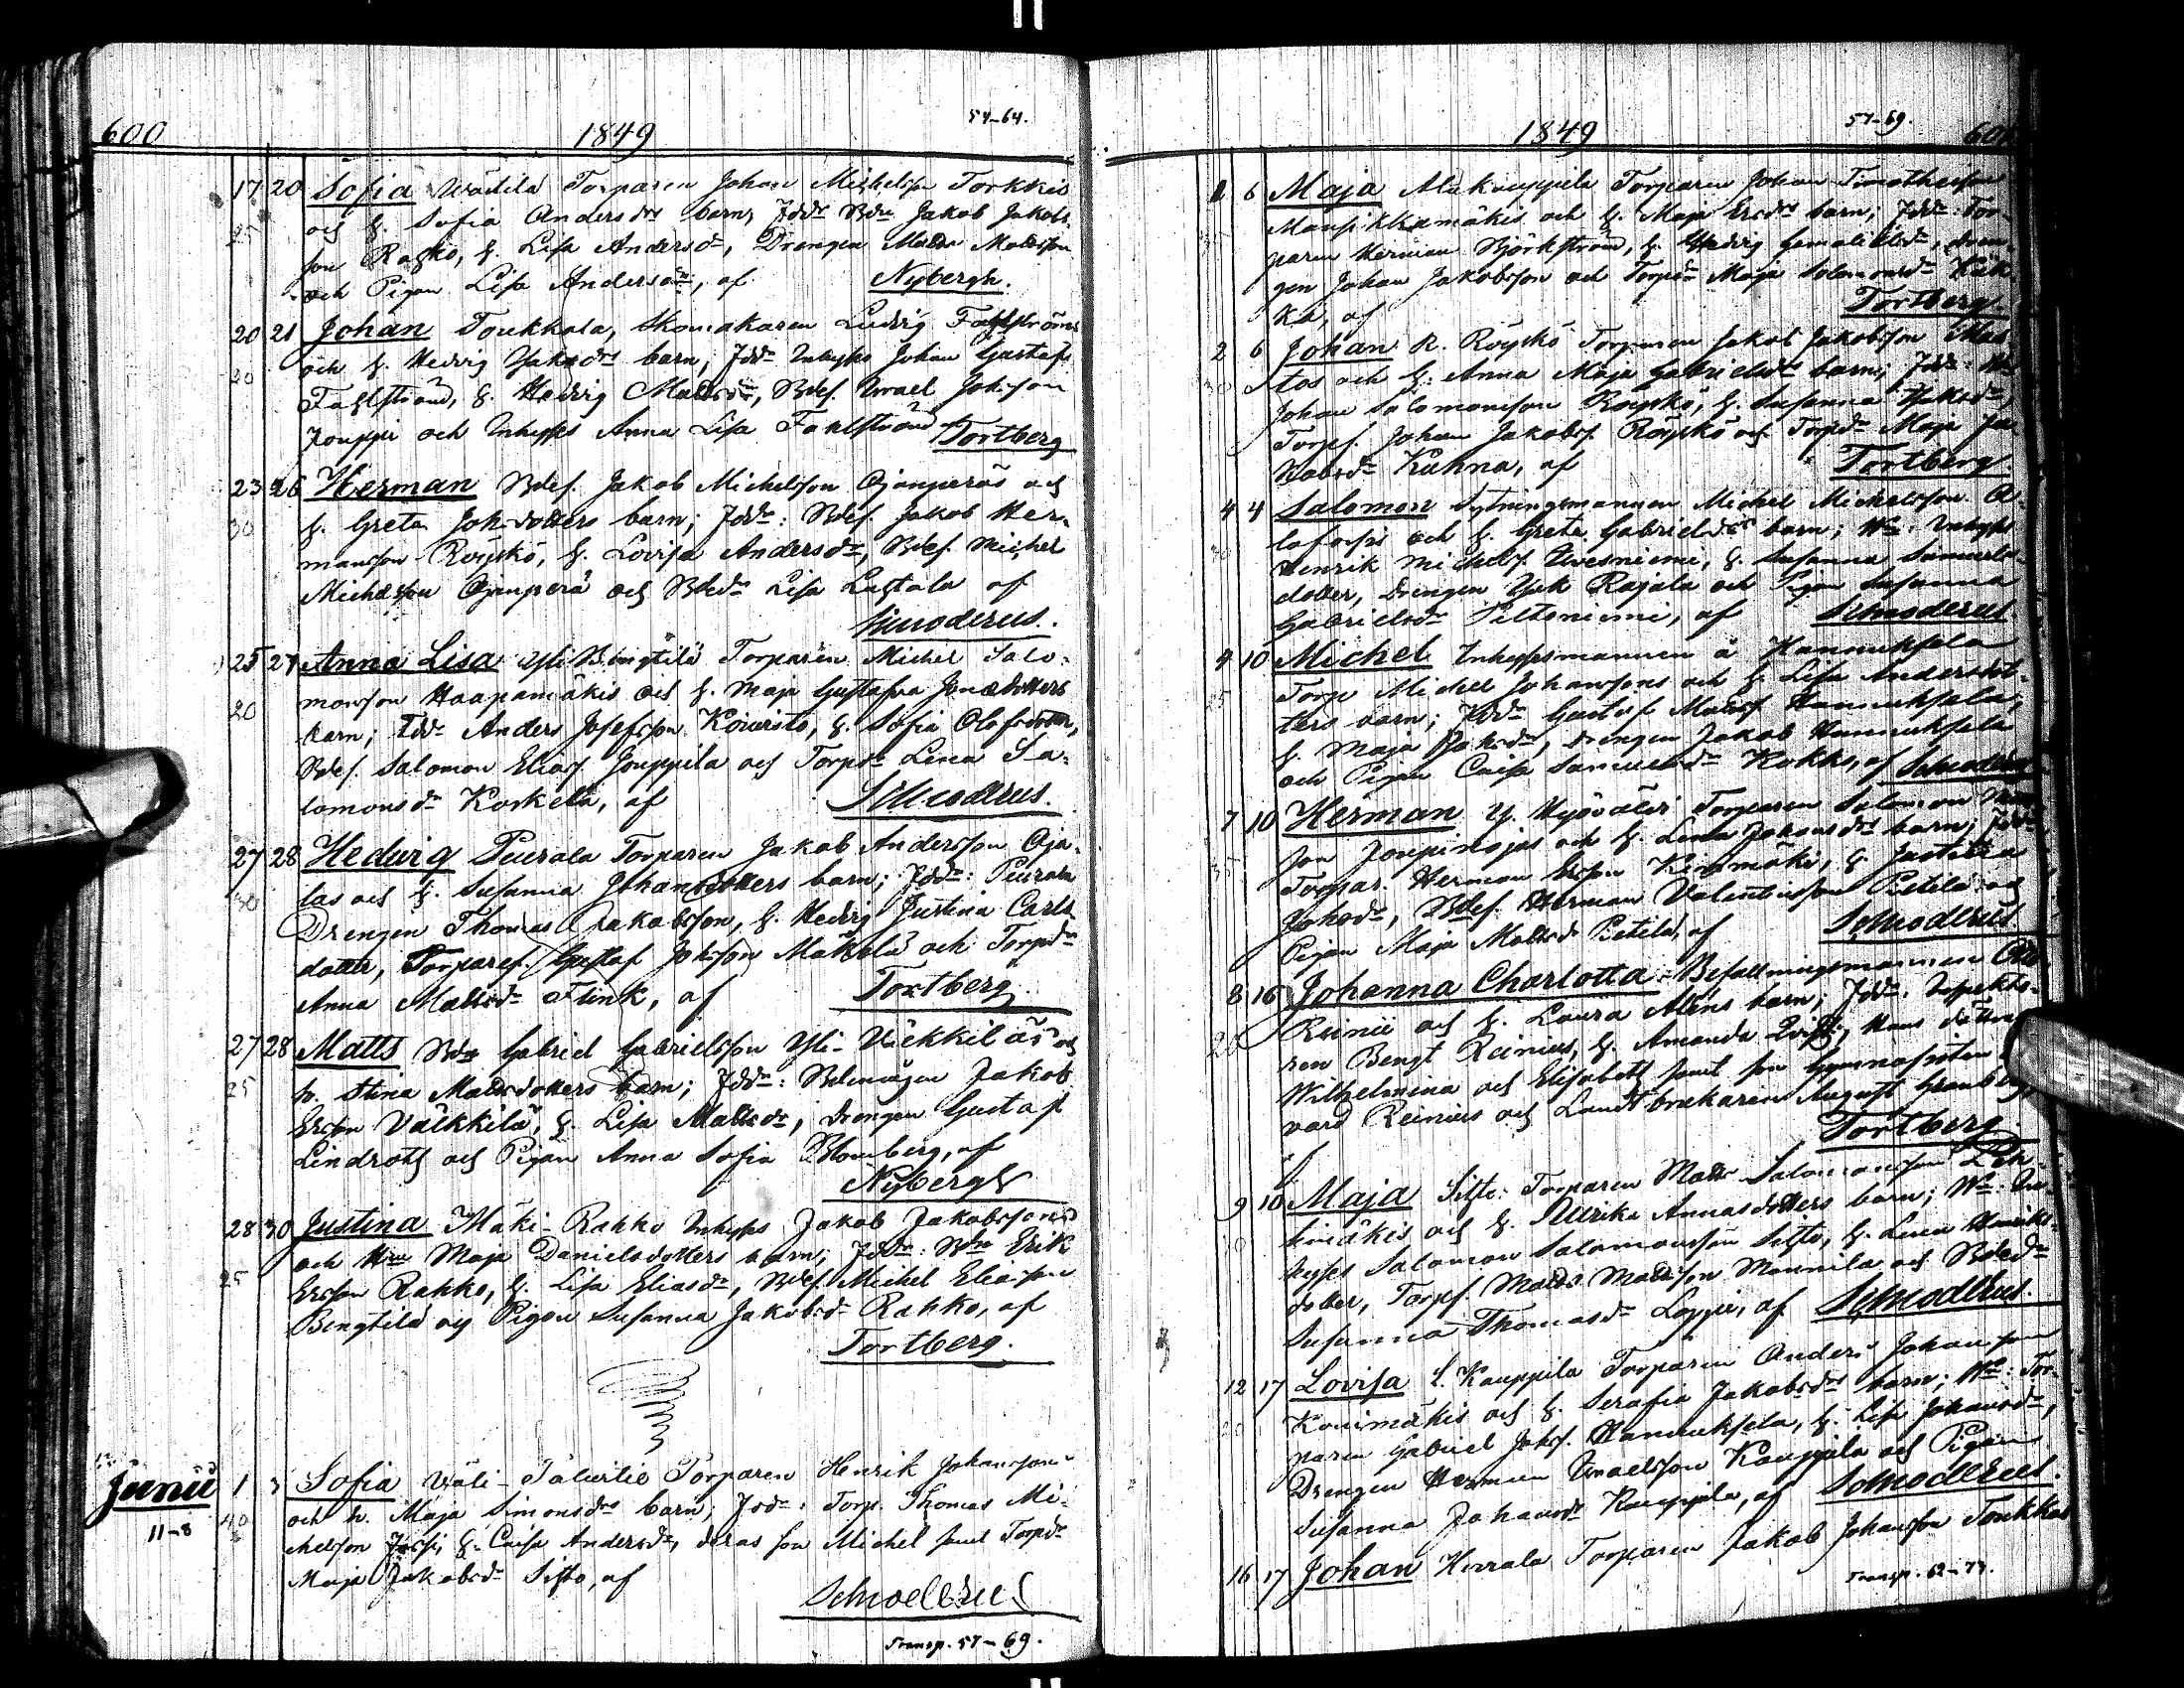 600 1849 54-64.
17 20 Sofia Wäitilä Torparen Johan Michelsson Torkkis
25 och h. Sofia Andersdrs barn; Fddr Bdn Jakob Jakobs-
son Rahko, h. Lisa Andersdr, Drengen Matts Mattsson
och Pigan Lisa Andersdr, af Nybergh.
20 21 Johan Toukkala, Skomakaren Ludvig Fahlströms
20 och h. Hedvig Jaksdrs barn; Fddr Inhyses Johan Gustaf
Fahlström, h. Hedvig Mattsdr, Bdes. Israel Johsson
Jouppi och Inhyses Anna Lisa Fahlström af Tortberg
23 26 Herman Bdes. Jakob Michelsson Ojanperäs och
30 h. Greta Johsdotters barn; Fddr: Bdes. Jakob Her-
mansson Röyskö, h. Lovisa Andersdr, Bdes. Michel
Michelsson Ojanperä och Bdedr Lisa Lagtala af
Schroderus.
25 27 Anna Lisa Yli Bengtilä Torparen Michel Salo-
20 monsson Haapamäkis och h. Maja Gustafva Jonaedotters
barn; Fddr Anders Josefsson Koivisto, h. Sofia Olofsdotter,
Bdes. Salomon Eliass. Jouppila och Torpdr Lena Sa-
lomonsdr Koskela, af Schroderus.
27 28 Hedvig Peurala Torparen Jakob Andersson Oja-
30 las och h. Susanna Johansdotters barn; Fddr: Peurala
Drengen Thomas Jakobsson, h. Hedvig Justina Carls-
dotter, Torpares. Gustaf Johsson Mäkelä och Torpdr
Anna Mattsdr Flink, af Tortberg
27 28 Matts Bdn Gabriel Gabrielsson Yli-Väkkiläs och
25 h. Stina Mattsdotters barn; Fddr: Bdemågen Jakob
Ersson Väkkilä, h. Lisa Mattsdr, Drengen Gustaf
Lindroth och Pigan Anna Sofia Blomberg, af
Nybergh
28 30 Justina Mäki-Rahko Inhyses Jakob Jakobssons
25 och Hu Maja Danielsdotters barn; Fddr: Bdn Erik
Ersson Rahko, h. Lisa Eliasdr, Bdes. Michel Eliasson
Bengtilä och Pigan Susanna Jakobsdr Rahko, af
Tortberg.
Junii 1 3 Sofia Väli-Talvitie Torparen Henrik Johanssons
11-8 40 och h. Maja Simonsdrs barn; Fddr: Torp. Thomas Mi-
chelsson h. Caisa Andersdr, deras son Michel samt Torpdr
Maja Jakobsdr Sifto, af
Schroderus
Transp. 57-69.
1849 57-69. 601
1 6 Maja Alakauppila Torparen Johan Timotheisson
Mansikkamäkis och h. Maja Ersdrs barn; Fddr: Tor-
paren Herman Björkström, h. Hedvig Gamalielsdr, dren-
gen Johan Jakobsson och Torpdr Maja Salomonsdr Kuk-
ka, af Tortberg.
2 6 Johan R. Röyskö Torparen Jakob Jakobsson
tos och h: Anna Maja Gabrielsdrs barn; Fddr:
Johan Salomonsson Röyskö, h. Susanna Jaksdr,
Torps. Johan Jakobss. Röyskö och Torpdr Maja Ja-
kobsdr Kuhna, af Tortberg.
4 4 Salomon Sytningsmannen Michel Michelsson
och h. Greta Gabrielsdrs barn; Inhyses
Henrik Michelss. h. Susanna Samuels-
dotter, Drengen Jak Rajala och Pigan Susanna
Gabrielsdr Peltoniemi, af Schroderus
4 10 Michel Inhysesmannen å Hannuksela
Torp Michel Johanssons och h Lisa Andersdot-
ters barn; Fddr Gustaf Mattss. Hannuksela,
h. Maja Jaksdr, drengen Jakob Hannuksela
och Pigan Caisa Samuelsdr Kokko, af Schroderus
7 10 Herman Y. Hyövälti Torparen Salomon
son Joupinojas och h. Lena Johansdrs barn; Fddr
Torpar. Herman Ersson Kinimäki, h. Justina
Johsdr, Bdes. Herman Valentinsson Pietilä och
Pigan Maja Mattsdr Pietilä, af Schroderus
8 16 Johanna Charlotta Befallningsmannen
Reinii och h. Laura Aléns barn; Fddr. Inspekto-
ren Bengt Reinius, h. Amanda Qvist, Hans döttrar
Wilhelmina och Elisabeth samt son Gymnasisten
vard Reinius och Landtbrukaren August Granberg,
af. Tortberg
9 10 Maja Sifto: Torparen Matts Salomonsson
mäkis och h. Ulrika Annasdotters barn; In-
hyses Salomon Salomonsson Sifto, h. Lena Henriks-
dotter, Torps Matts Mattsson Mannila och Bdedr
Susanna Thomasdr Loppi, af Schroderus.
12 17 Lovisa L. Kauppila Torparen Anders Johansson
Konimäkis och h. Serafia Jakobsdrs barn; Tor-
paren Gabriel Johss. Hannuksela, h. Lisa Johansdr,
Drengen Herman Israelsson Kauppila och Pigan
Susanna Johansdr Kauppila, af Schroderus.
16 17 Johan Hirrala Torparen Jakob Johansson Toukkas
Transp. 62-73.